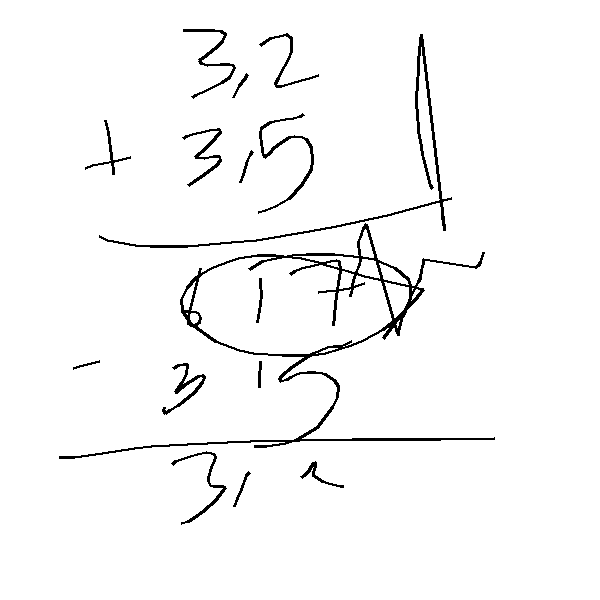 3,2
+ 3,5
6,7
- 3,5
3,2